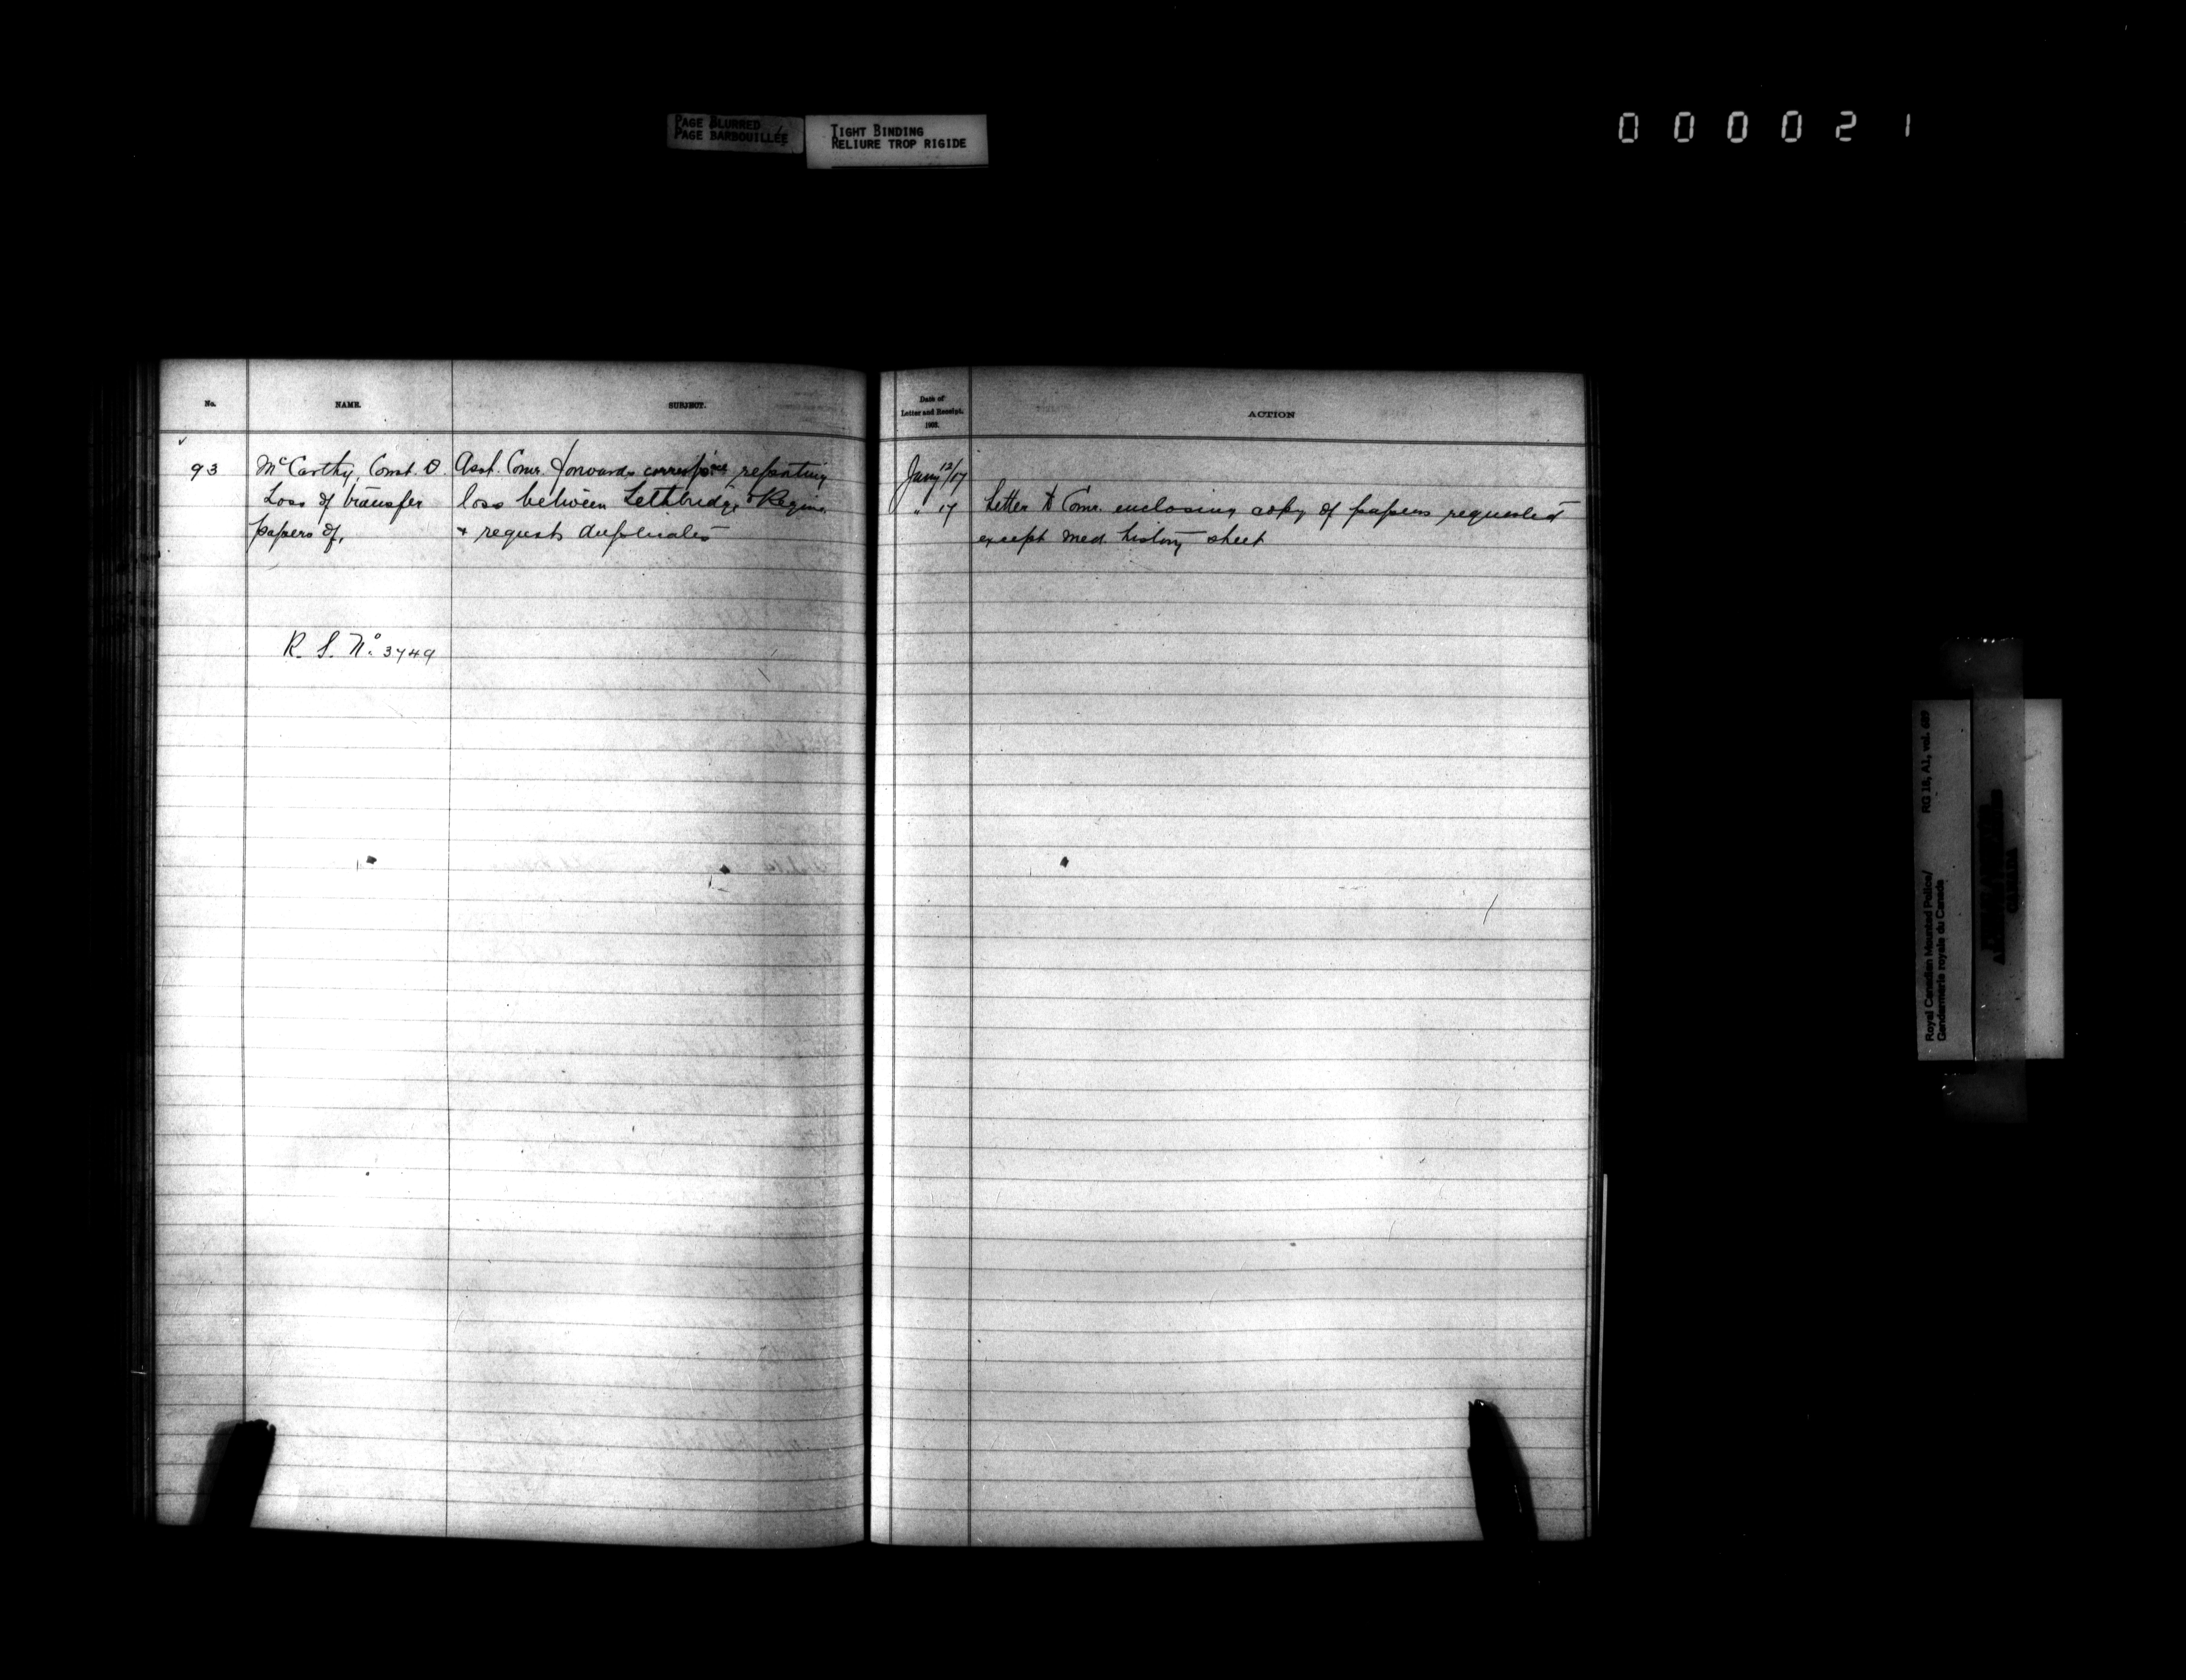 PAGE BLURRED
PAGE BARBOUILLÉE
TIGHT BINDING
RELIURE TROP RIGIDE
000021
No.
NAME.
SUBJECT.
93
McCarthy, Const. D.
Loss of transfer
papers of,
R. S. No. 3749
Asst. Comr. forwards corresp'nce reporting
loss between Lethbridge & Regina
& requests duplicates
Date of
Letter and Receipt.
1903.
ACTION
Jany 12/17
" 17
Letter to Comr. enclosing copy of papers requested
except med. history sheet
Royal Canadian Mounted Police/
Gendarmerie royale du Canada
RG 18, A1, vol. 689
CANADA